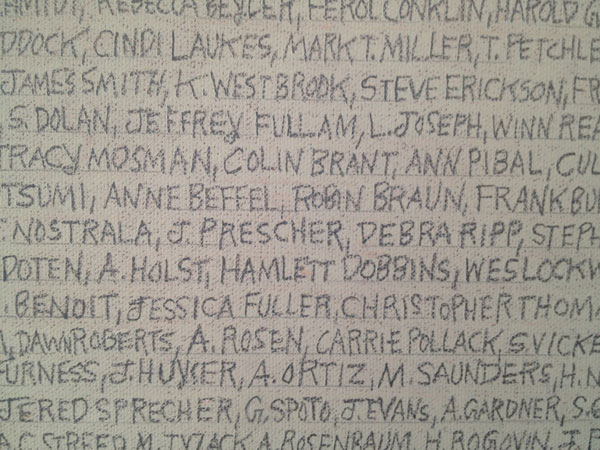 HMIDT, REBECCA BEYLER, FEROL CONKLIN, HAROLD G
DDOCK, CINDI LAUKES, MARK T. MILLER, T. PETCHLE
JAMES SMITH, K. WESTBROOK, STEVE ERICKSON, FR
, S. DOLAN, JEFFREY FULLAM, L. JOSEPH, WINN REA
TRACY MOSMAN, COLIN BRANT, ANN PIBAL, CUL
TSUMI, ANNE BEFFEL, ROBIN BRAUN, FRANK BU
. NOSTRALA, J. PRESCHER, DEBRA RIPP, STEPH
DOTEN, A. HOLST, HAMLETT DOBBINS, WES LOCKW
. BENOIT, JESSICA FULLER, CHRISTOPHER THOMA
, DAWN ROBERTS, A. ROSEN, CARRIE POLLACK, S. VICKE
FURNESS, J. HUYSER, A. ORTIZ, M. SAUNDERS, H. N
JERED SPRECHER, G. SPOTO, J. EVANS, A. GARDNER, S. G
A.C. STREED, M. TYZACK, A. ROSENBAUM, H. ROGOVIN, J. P